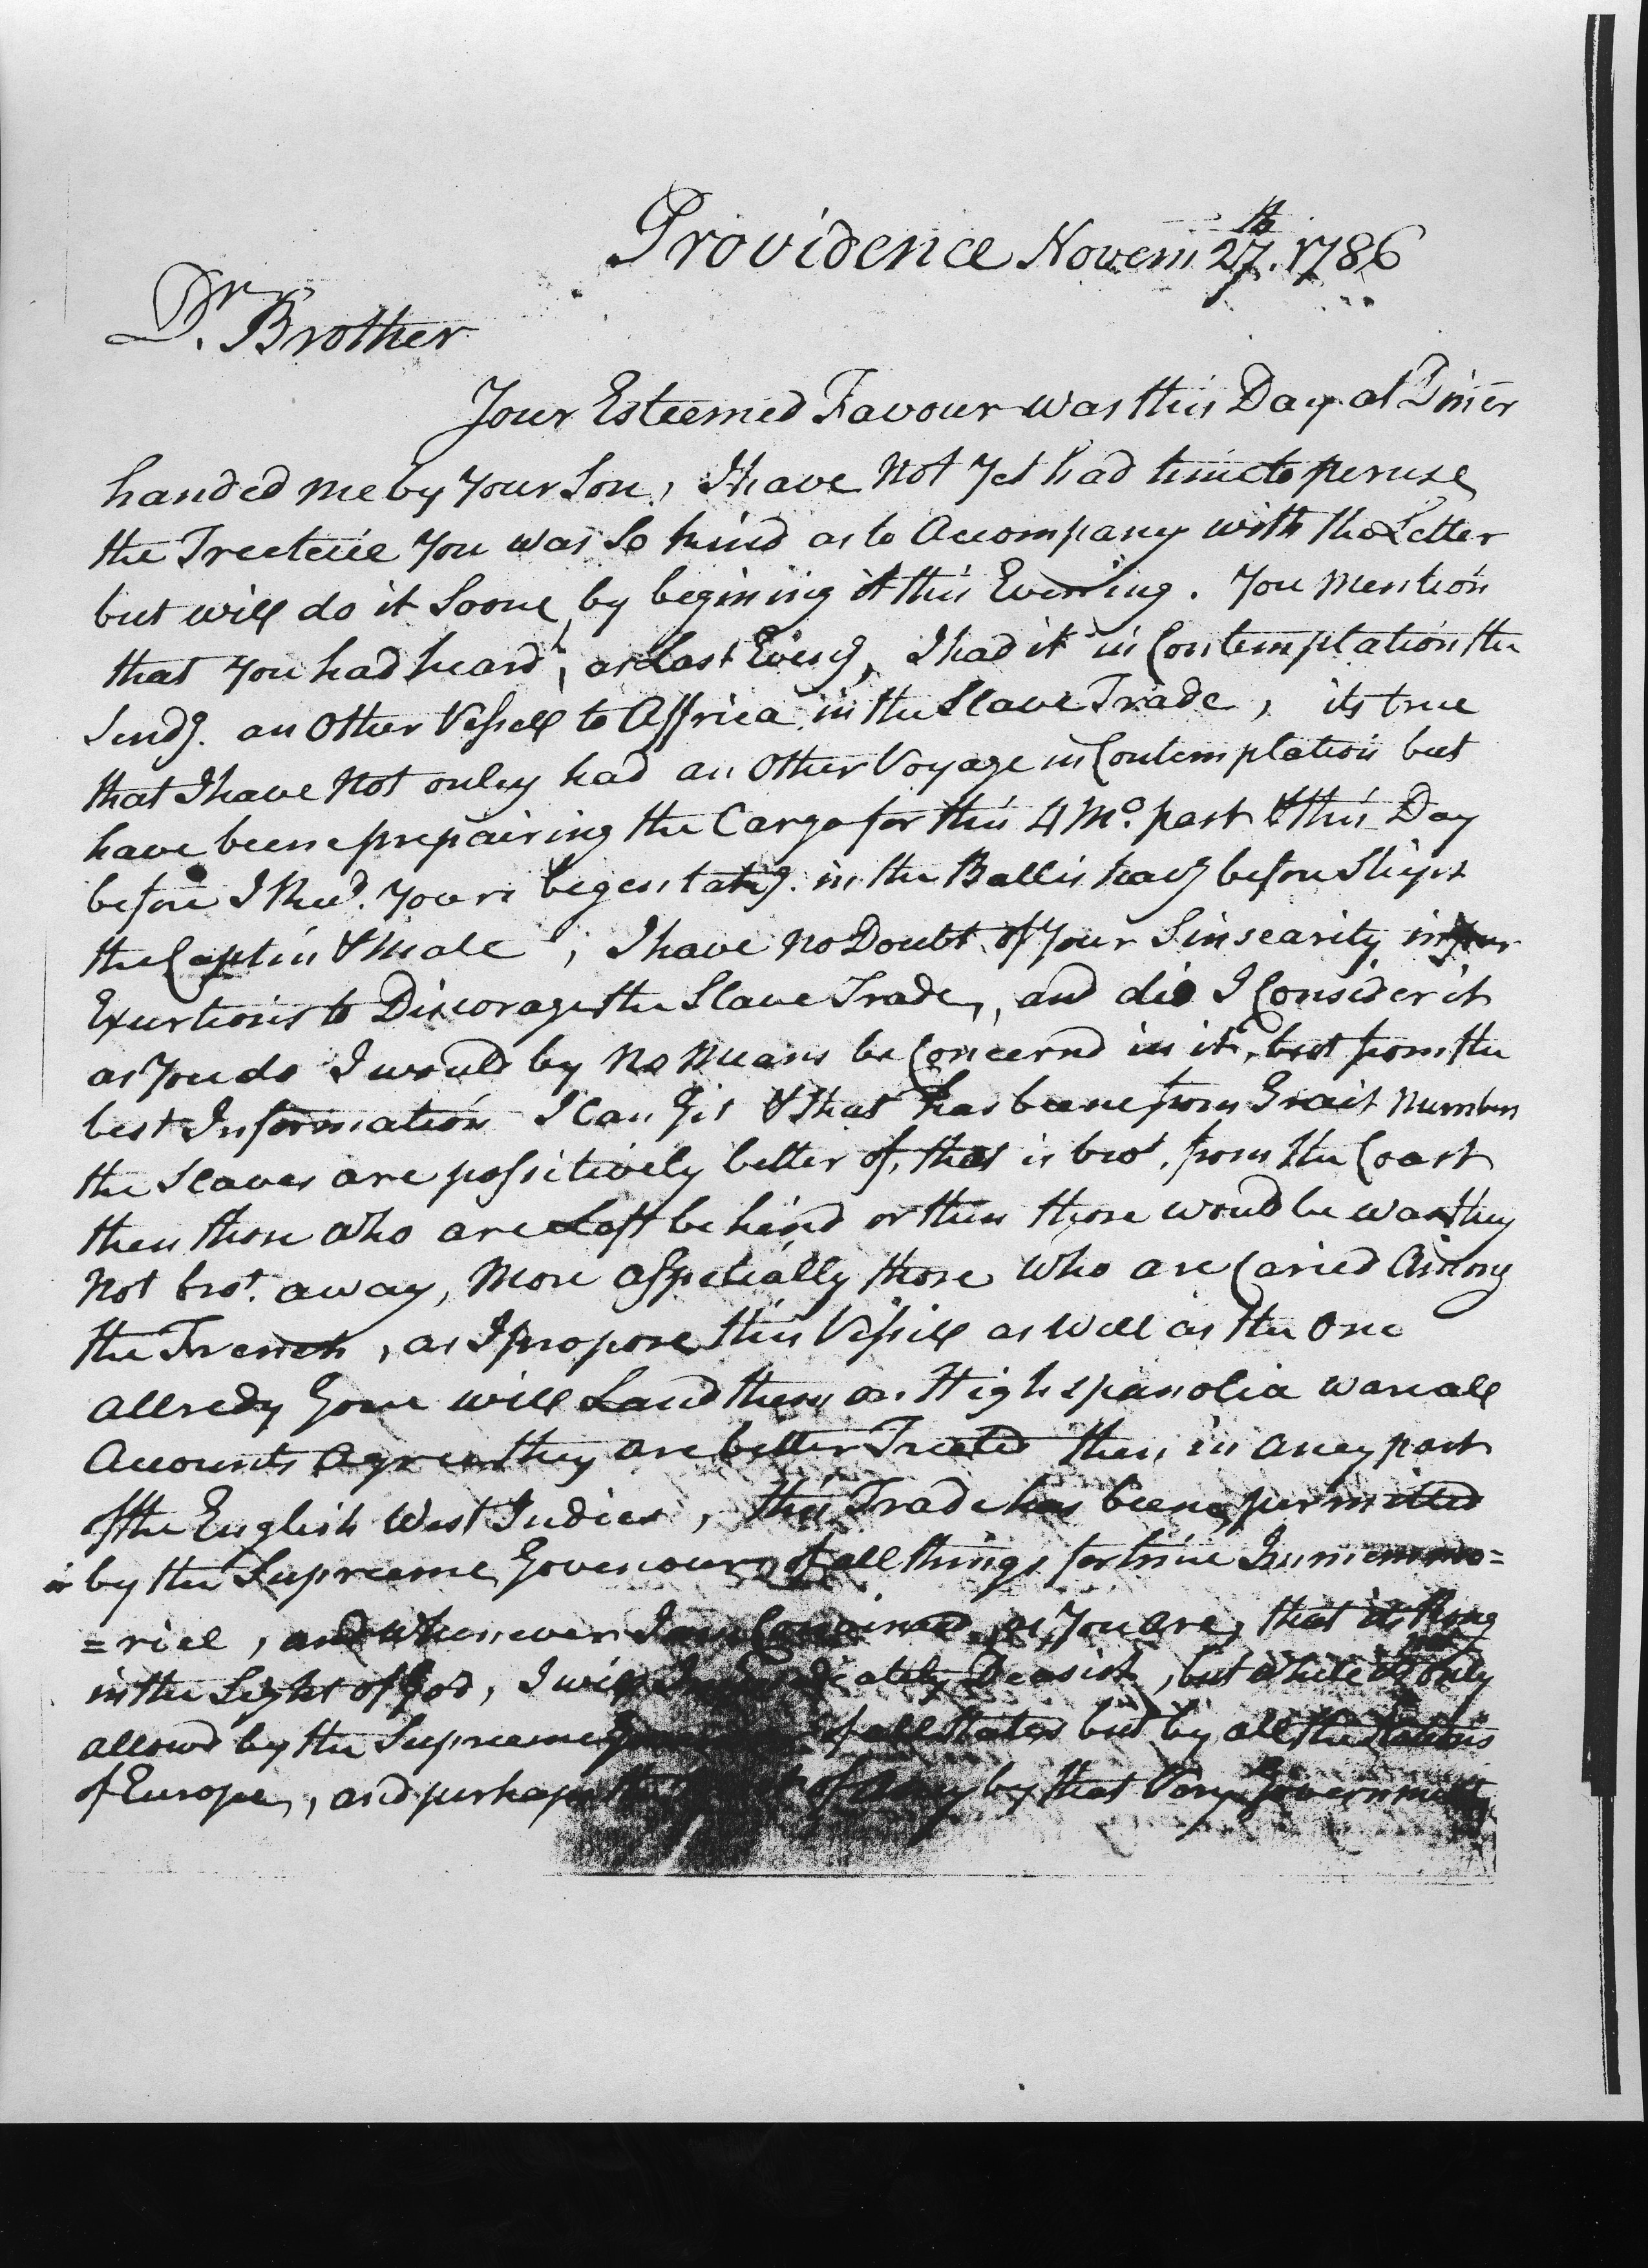 Providence Novem 27th. 1786
Dr. Brother
Your Esteemed Favour was this Day at Diner
handed me by Your Son, I have Not Yet had time to peruse
the Treeteice You was So kind as to Accompany with the Letter
but will do it Soone, by begining it this Evening. You Mention
that You had heard, as Last Eveng, I had it in Contemplation the
Sendg. an Other Vessell to Affrica in the Slave Trade, its true
that I have Not onley had an Other Voyage in Contemplation but
have beene prepairing the Cargo for this 4 Mo. past & this Day
before I Recd. Yours begen takg. in the Ballis havg before Shipt
the Captin & Mate, I have no Doubt of Your Sinsearity in Your
Exurtions to Discorage the Slave Trade, and did I Consider it
as You do I would by No Means be Concernd in it, but from the
best Information I Can Git & that has beene from Grait Numbers
the Slaves are possitively better of, that is brot. from the Coast
then those who are Left behind or then those would be was they
Not brot. away, More Espetially those Who are Caried Among
the French, as I propose this Vessill as Well as the One
allredy Gone will Land them on Highspanolia ware all
Accounts Agree they are better Treeted then in aney part
of the English West Indies, this Trade has beene permitted
by the Supreeme Govenour of all things for time Immemmo=
=riel, and whenever I am Convinced, as You are, that its Rong
in the Sight of God, I will Immediately Deasist, but while its not only
allowd by the Supreeme of all States but by all the Nations
of Europe, and perhaps the of any by that Very Government